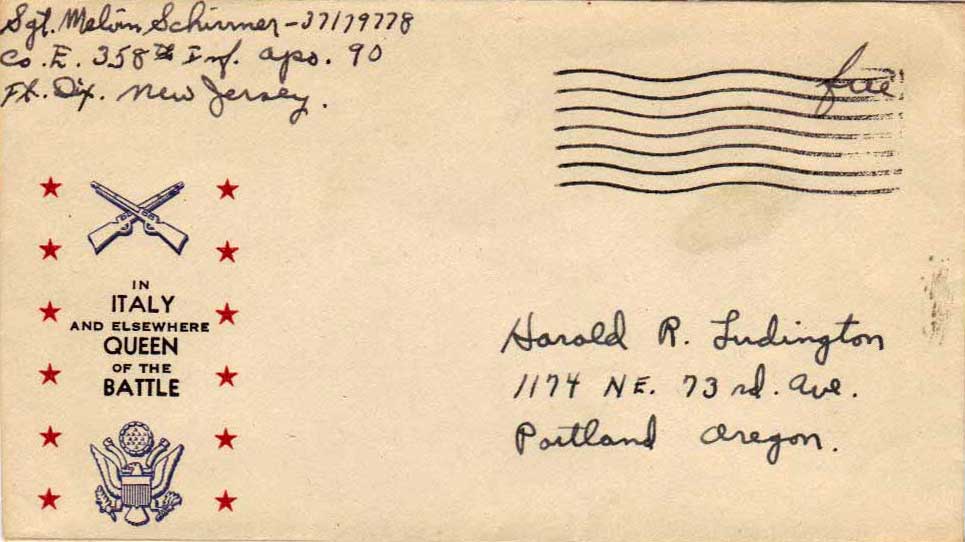 Sgt. Melvin Schirmer - 37179778
Co. E. 358th Inf. apo. 90
Ft. Dix. New Jersey.
free
IN
ITALY
AND ELSEWHERE
QUEEN
OF THE
BATTLE
Harold R. Ludington
1174 NE. 73 rd. Ave.
Portland Oregon.